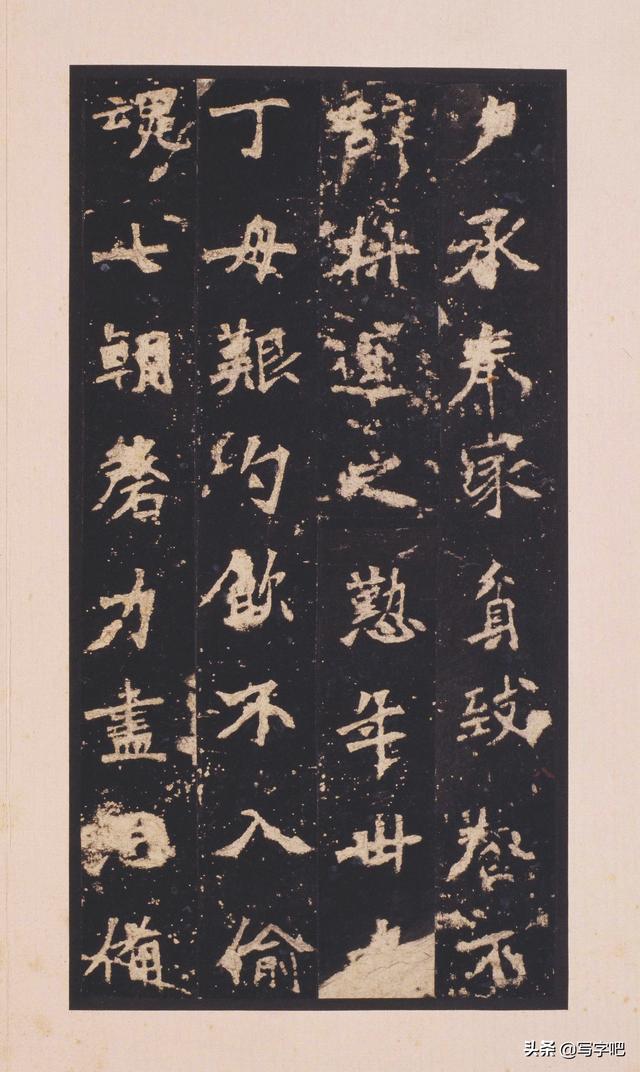 夕承奉家貧致養不
辭採運之懃年卅
丁母艱勺飲不入偷
魂七朝磬力盡備
头条 @写字吧